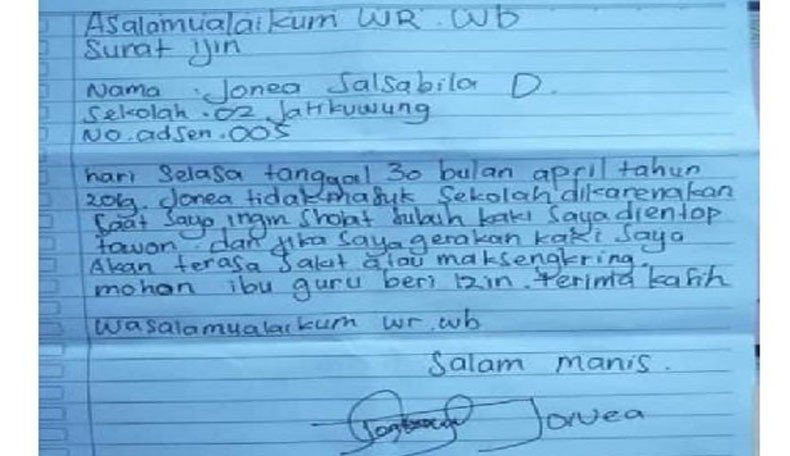 Asalamualaikum WR. Wb
Surat ijin
Nama : Jonea Salsabila D.
Sekolah . 02 Jatikuwung
No. adsen . 005
hari Selasa tanggal 30 bulan april tahun
2019. Jonea tidak masuk sekolah dikarenakan
saat saya ingin sholat subuh kaki saya dientop
tawon. dan jika saya gerakan kaki saya
Akan terasa sakit atau maksengkring.
mohon ibu guru beri izin. terima kasih
Wasalamualaikum wr. wb
Salam manis.
Jonea